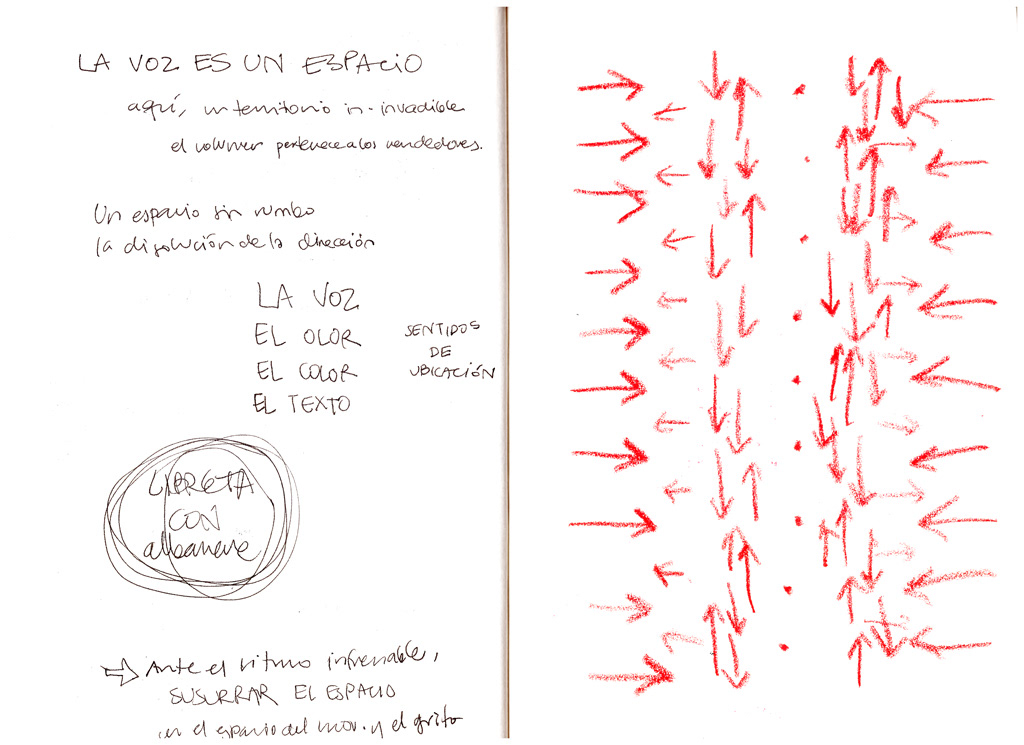 LA VOZ ES UN ESPACIO
aquí, un territorio in-invadible
el volumen pertenece a los vendedores.
Un espacio sin rumbo
la disolución de la dirección
LA VOZ
EL OLOR
EL COLOR
EL TEXTO
SENTIDOS
DE
UBICACIÓN
LIBRETA
CON
albanene
Ante el ritmo infrenable,
SUSURRAR EL ESPACIO
en el espacio del mov. y el grito